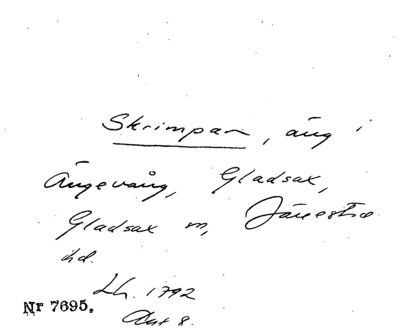 Skrimpan, äng i
Ängevång, Gladsax,
Gladsax sn, Järrestads
hd.
Lh. 1792
Akt 8.
Nr 7695.